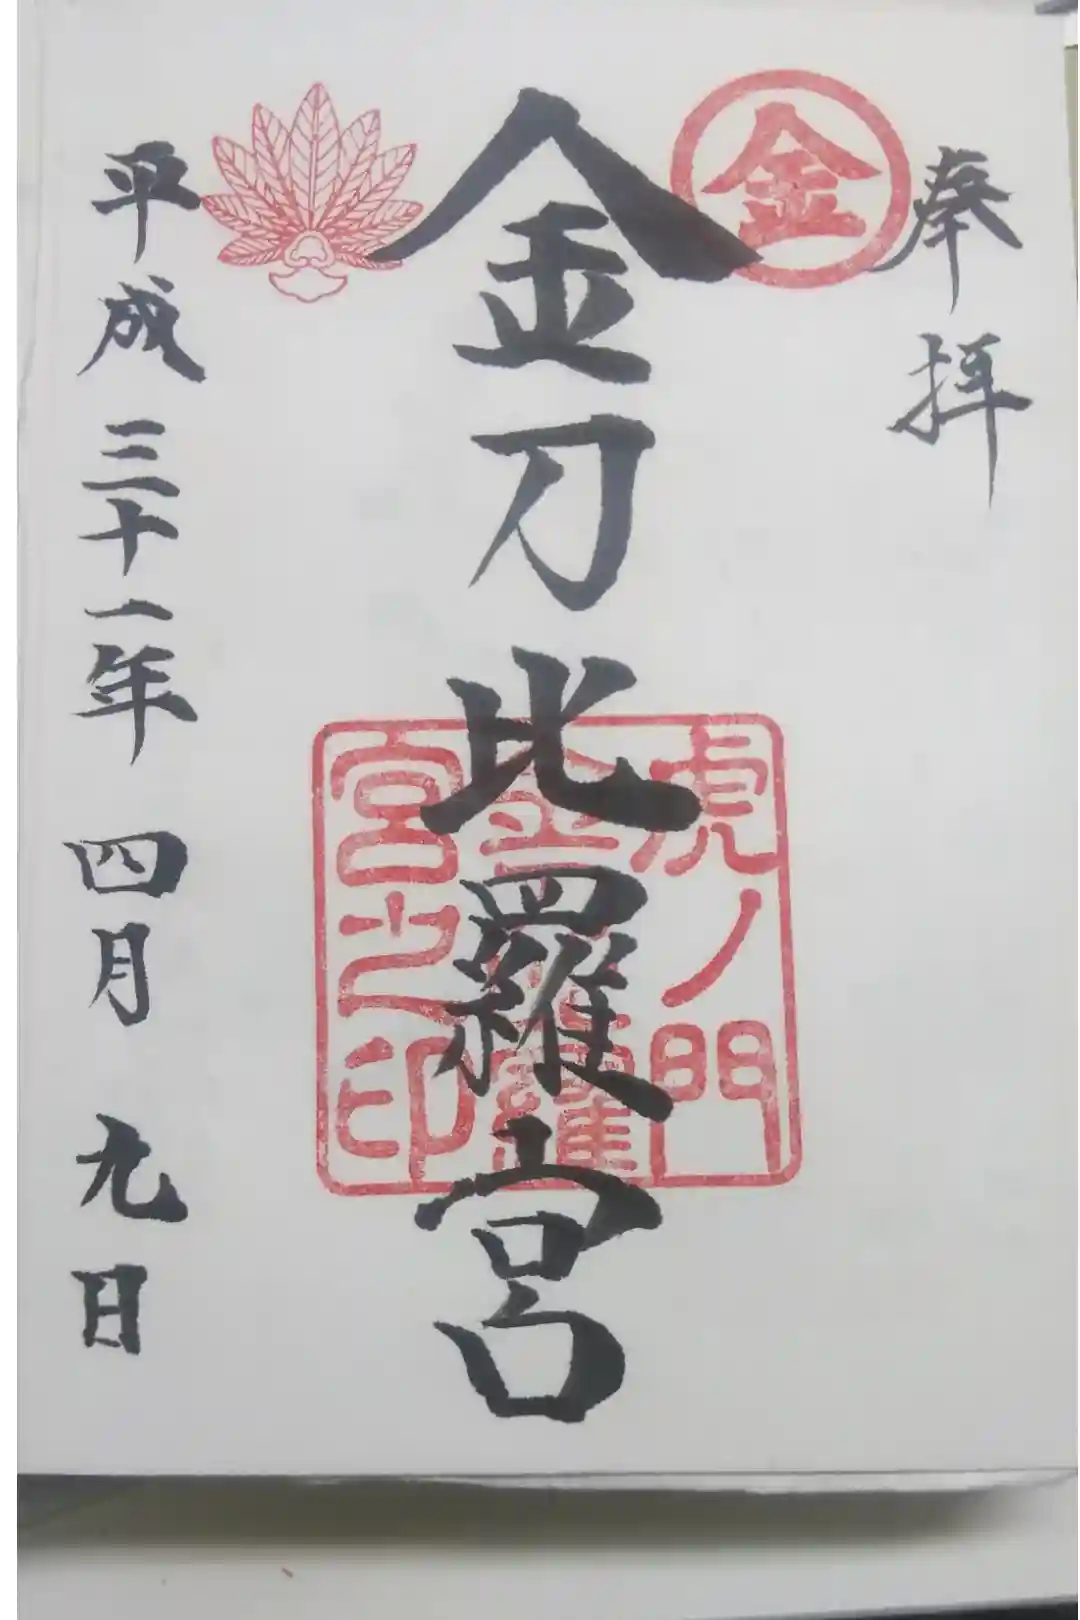 奉拝
金
金刀比羅宮
虎ノ門
金刀比羅
宮之印
平成三十一年四月九日